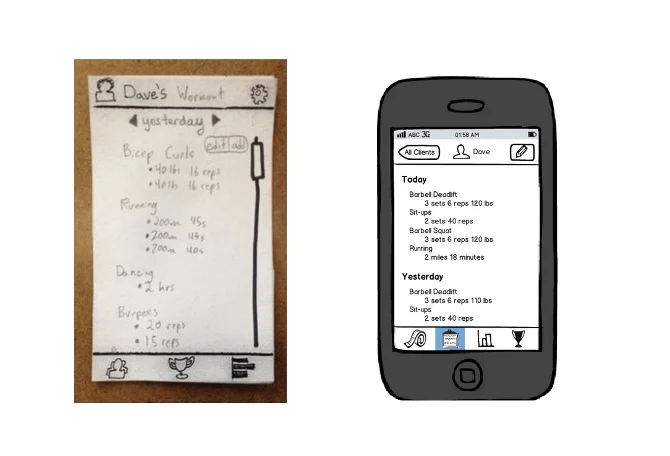 Dave's Workout
yesterday
edit|add
Bicep Curls
• 40 lb 16 reps
• 40 lb 16 reps
Running
• 200m 45s
• 200m 43s
• 200m 40s
Dancing
• 2 hrs
Burpees
• 20 reps
• 15 reps
ABC 3G 01:58 AM
All Clients Dave
Today
Barbell Deadlift
3 sets 6 reps 120 lbs
Sit-ups
2 sets 40 reps
Barbell Squat
3 sets 6 reps 120 lbs
Running
2 miles 18 minutes
Yesterday
Barbell Deadlift
3 sets 6 reps 110 lbs
Sit-ups
2 sets 40 reps